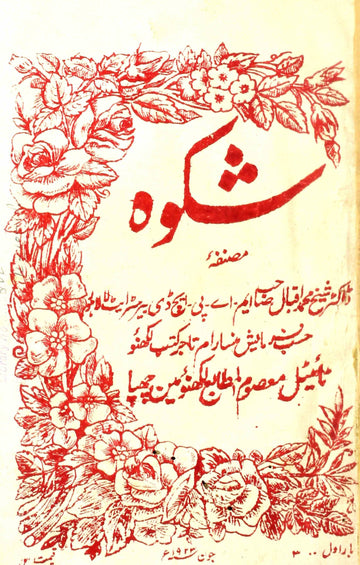 شکوہ
مصنفۂ
ڈاکٹر شیخ محمد اقبال صاحب ایم۔اے۔پی۔ایچ ڈی بیرسٹر ایٹ لا لاہور
حسب فرمایش منسا رام تاجر کتب لکھنؤ
ٹائیٹل معصوم المطابع لکھنؤ مین چھپا
بار اول ۳۰۰۰ جون ۱۹۲۳ء قیمت